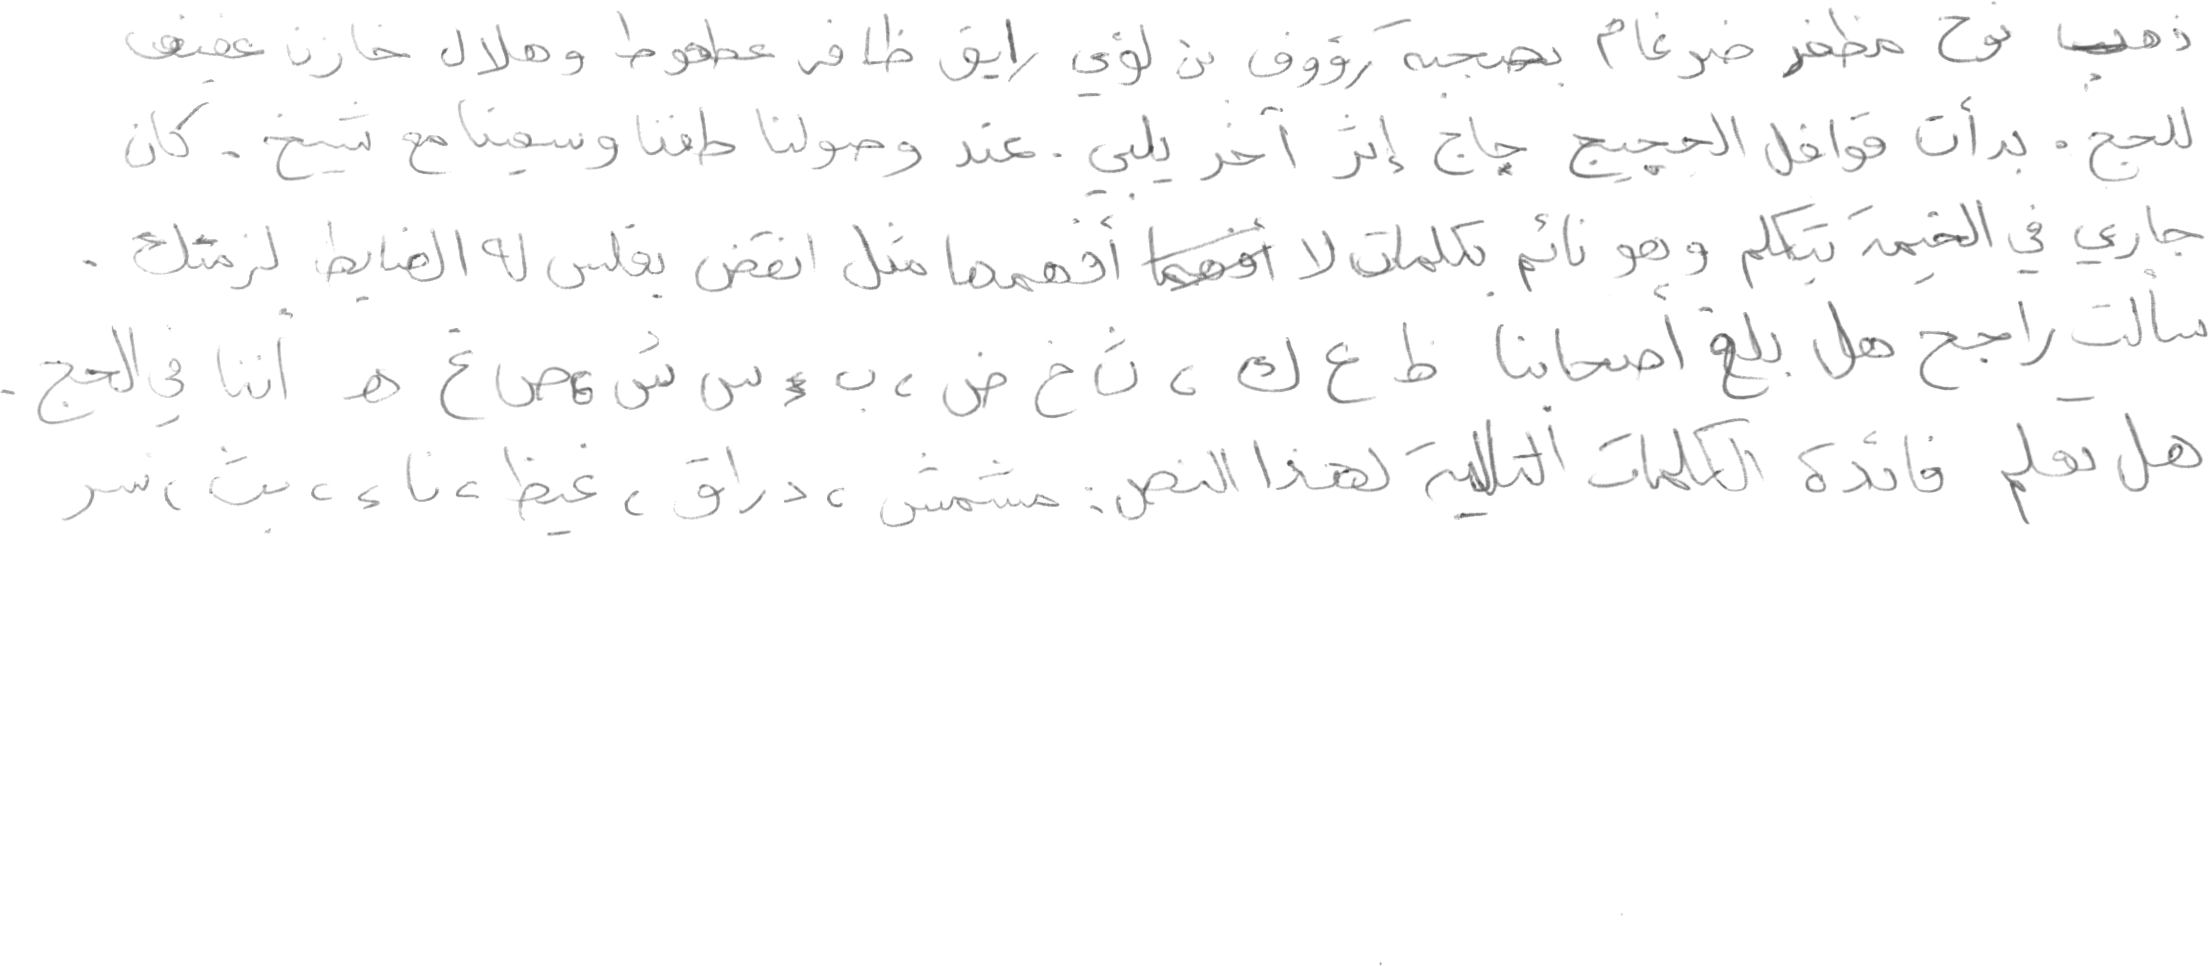 ذهب نوح مظفر ضرغام بصحبة رؤوف بن لؤي رايق ظافر عطعوط وهلال خازن عفيف
للحج . بدأت قوافل الحجيج حاج إثر آخر يلبي . عند وصولنا طفنا وسعينا مع شيخ . كان
جاري في الخيمة يتكلم وهو نائم بكلمات لا أفهمها مثل انقض بغلس له الضابط لزمتك .
سألت راجح هل بلغ أصحابنا ظ ع ك ، ث خ ض ، ب ء س ش ص غ ه أننا في الحج .
هل تعلم فائدة الكلمات التالية لهذا النص : مشمش ، دراق ، غيظ ، ناء ، بث ، نسر